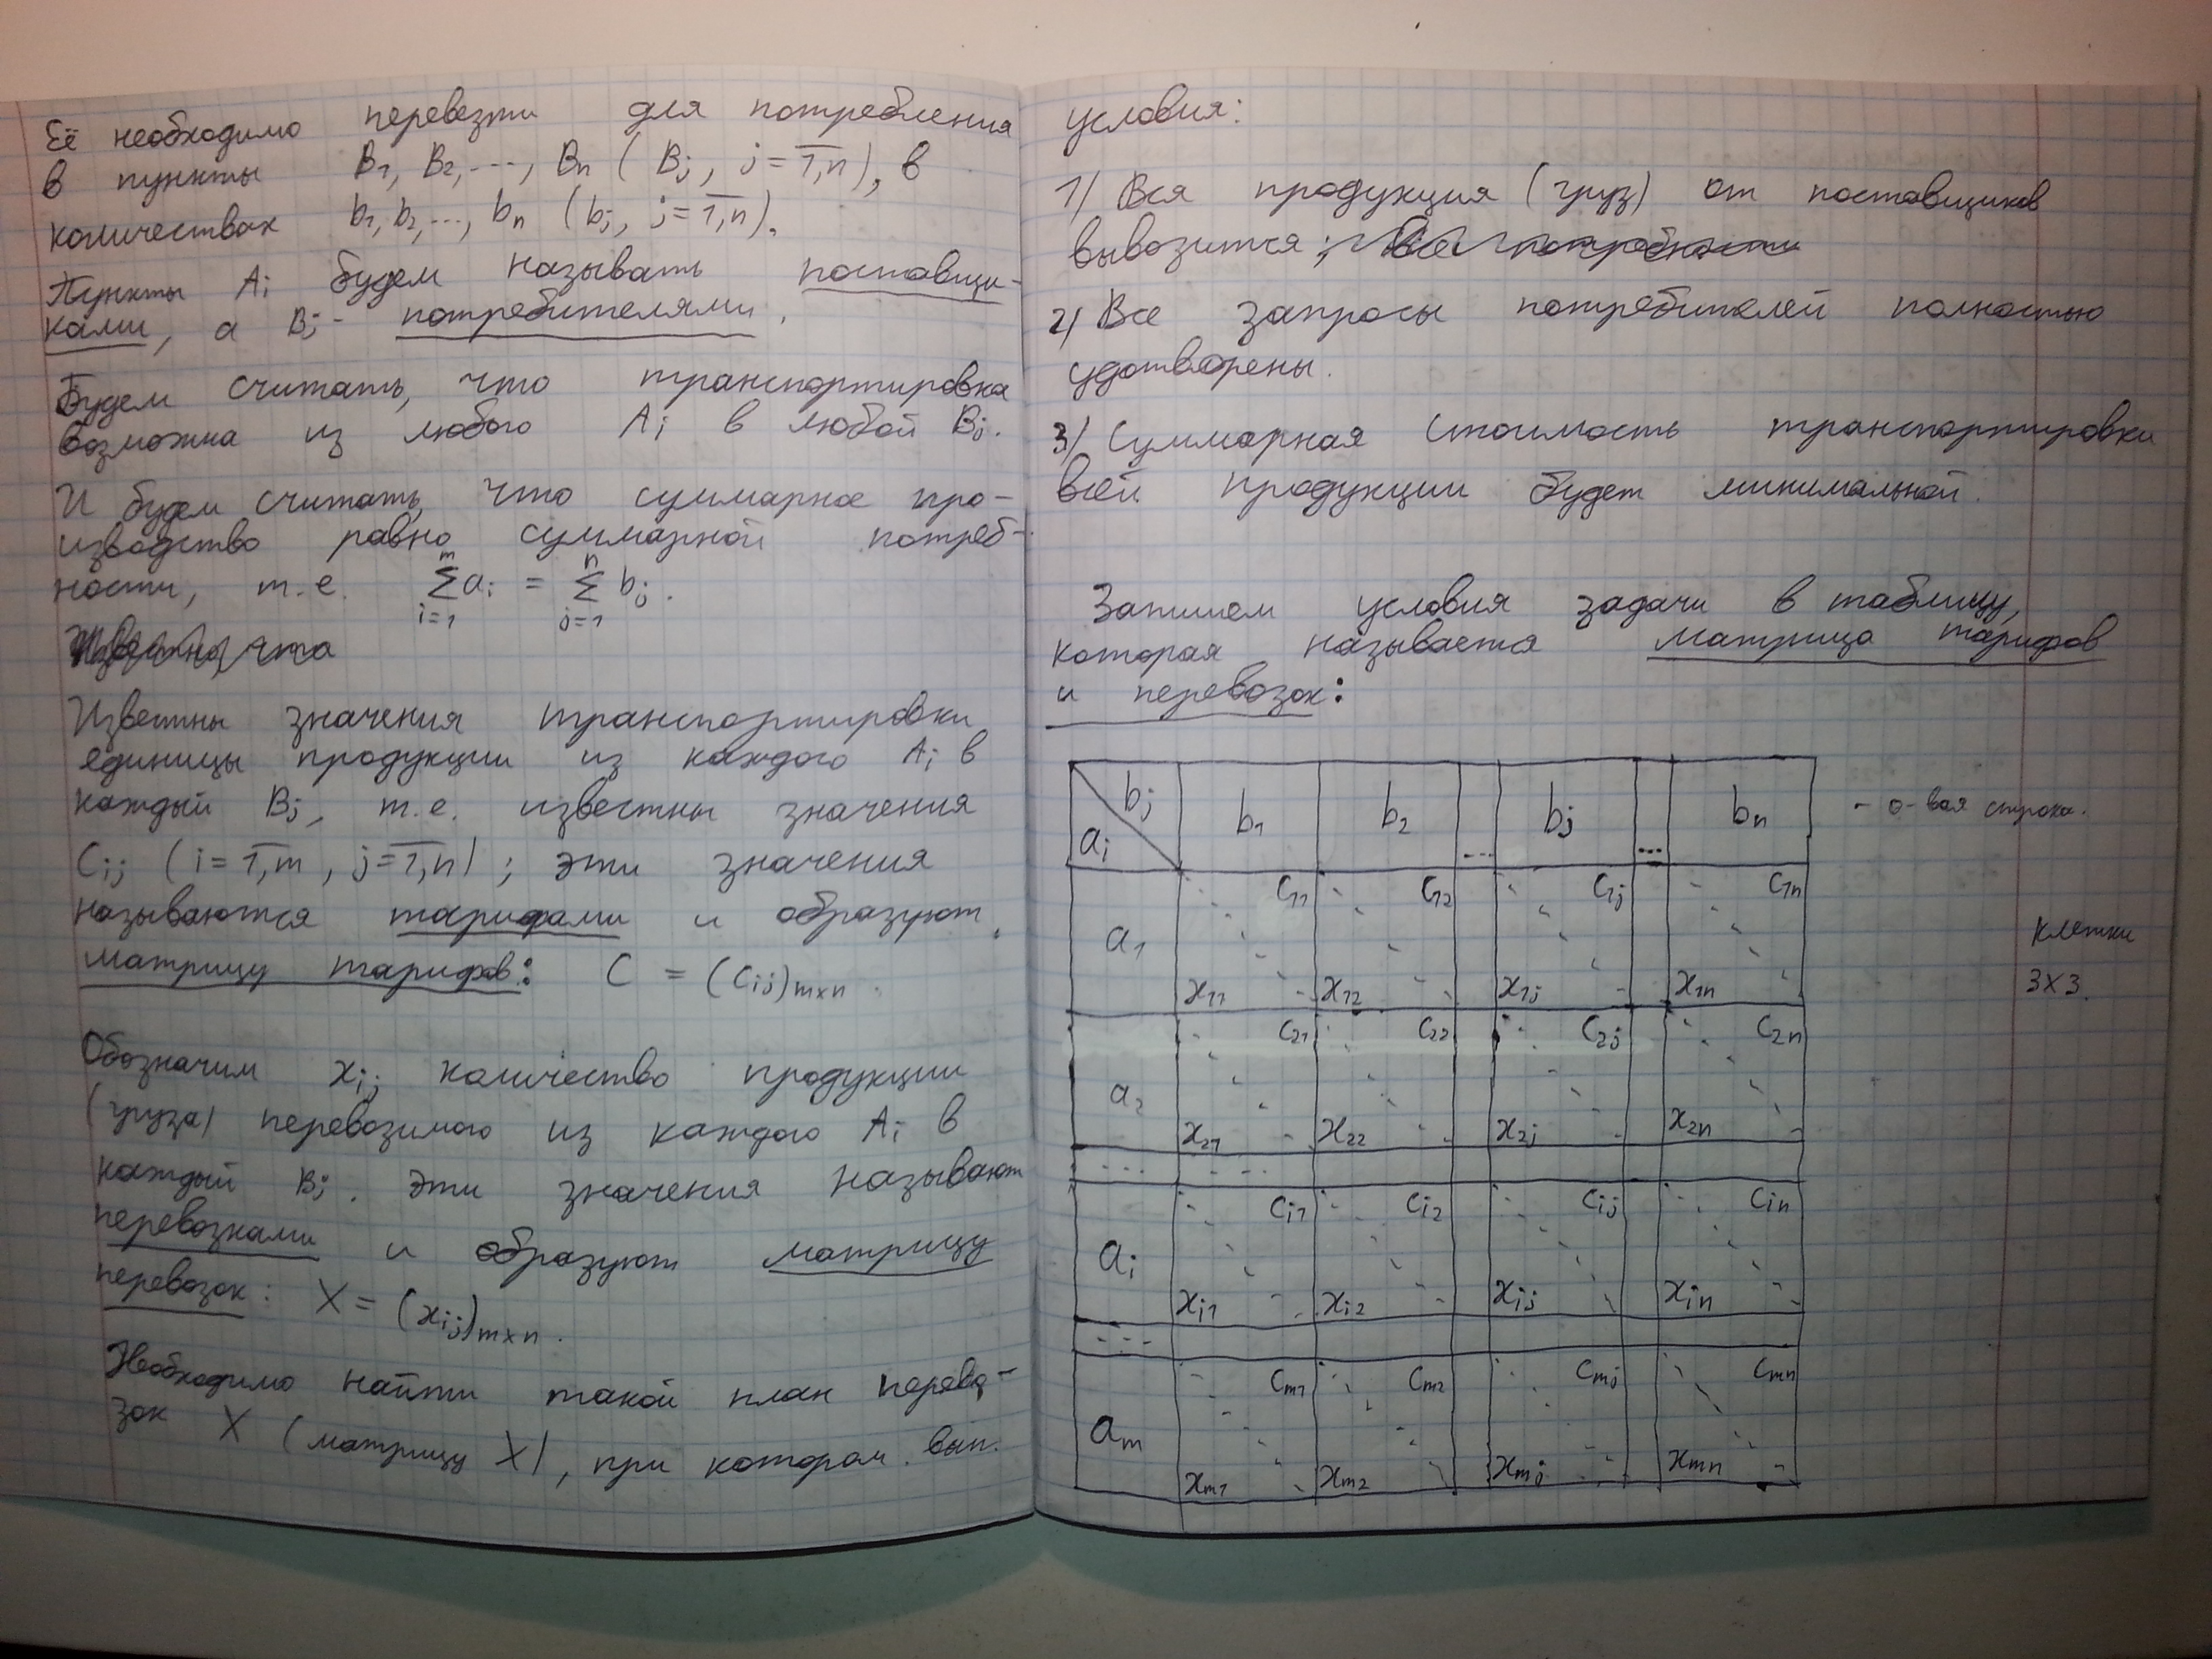 Её необходимо перевезти для потребления
в пункты B₁, B₂, ..., Bₙ (Bⱼ, j = 1,n), в
количествах b₁, b₂, ..., bₙ (bⱼ, j = 1,n).
Пункты Aᵢ будем называть поставщи-
ками, а Bⱼ - потребителями.
Будем считать, что транспортировка
возможна из любого Aᵢ в любой Bⱼ.
И будем считать, что суммарное про-
изводство равно суммарной потреб-
ности, т.е. ∑ᵢ₌₁ᵐ aᵢ = ∑ⱼ₌₁ⁿ bⱼ.
Известны значения транспортировки
единицы продукции из каждого Aᵢ в
каждый Bⱼ, т.е. известны значения
Cᵢⱼ (i = 1,m, j = 1,n); эти значения
называются тарифами и образуют
матрицу тарифов: C = (cᵢⱼ)ₘₓₙ.
Обозначим xᵢⱼ количество продукции
(груза) перевозимого из каждого Aᵢ в
каждый Bⱼ. Эти значения называют
перевозками и образуют матрицу
перевозок: X = (xᵢⱼ)ₘₓₙ.
Необходимо найти такой план перево-
зок X (матрицу X), при котором вып.
условия:
1) Вся продукция (груз) от поставщиков
вывозится;
2) Все запросы потребителей полностью
удотворены.
3) Суммарная стоимость транспортировки
всей продукции будет минимальной.
Запишем условия задачи в таблицу,
которая называется матрица тарифов
и перевозок:
bⱼ b₁ b₂ ... bⱼ ... bₙ - 0-вая строка.
aᵢ
c₁₁ c₁₂ c₁ⱼ c₁ₙ
a₁ клетки
x₁₁ x₁₂ x₁ⱼ x₁ₙ 3x3.
c₂₁ c₂₂ c₂ⱼ c₂ₙ
a₂
x₂₁ x₂₂ x₂ⱼ x₂ₙ
... ...
cᵢ₁ cᵢ₂ cᵢⱼ cᵢₙ
aᵢ
xᵢ₁ xᵢ₂ xᵢⱼ xᵢₙ
...
cₘ₁ cₘ₂ cₘⱼ cₘₙ
aₘ
xₘ₁ xₘ₂ xₘⱼ xₘₙ